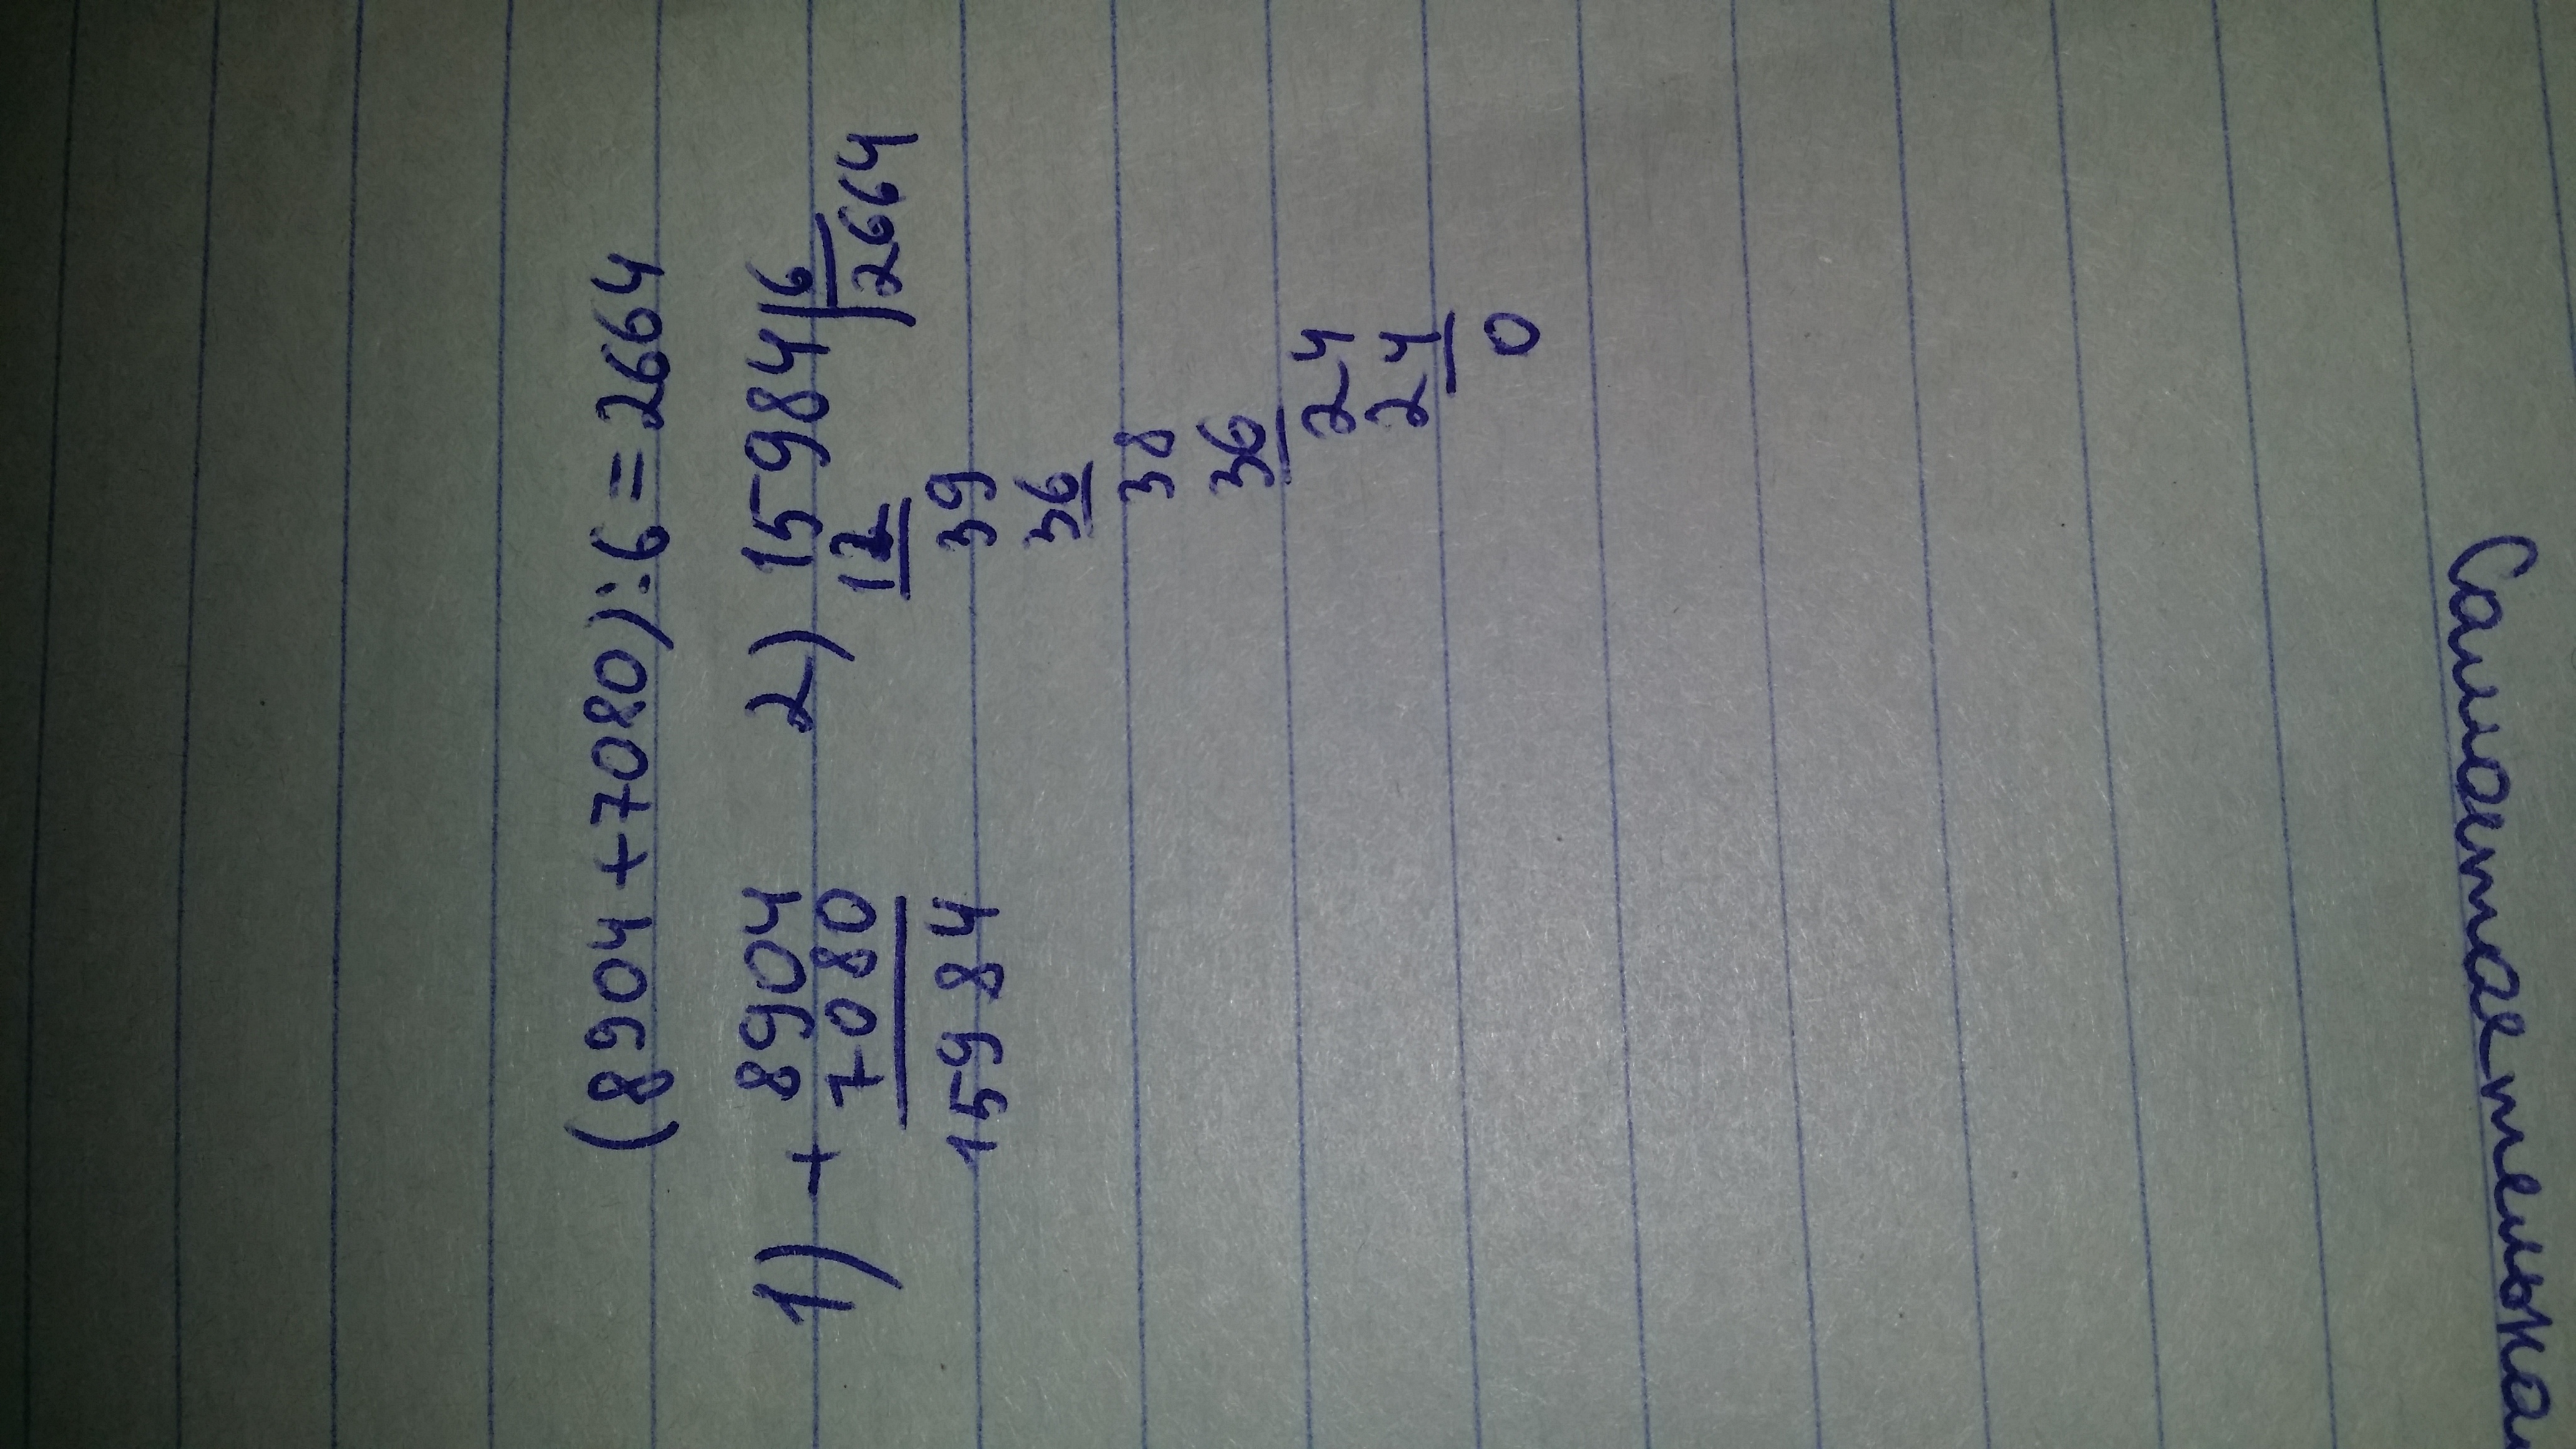 (8904+7080):6=2664
1) + 8904 2) 15984|6
7080 12 |2664
15984 39
36
38
36
24
24
0
Самостоятельна